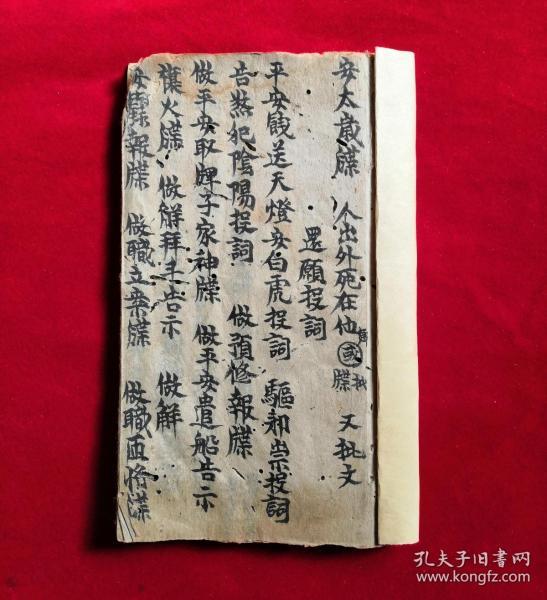 安太歲牒 人出外死在他或牒 又批文
還願投詞
平安餞送天燈安白虎投詞 驅邪祟投詞
告煞犯陰陽投詞 做預修報牒
做平安取牌子家神牒 做平安遣船告示
禳火牒 做解拜手告示 做解
安龍報牒 做職立案牒 做職
孔夫子旧书网
www.kongfz.com